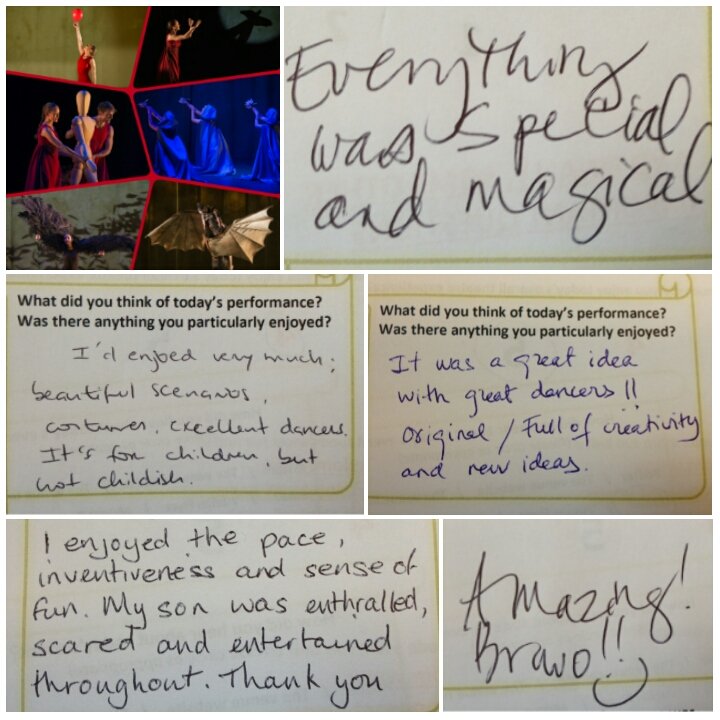 Everything
was special
and magical
What did you think of today's performance?
Was there anything you particularly enjoyed?
I'd enjoed very much;
beautiful scenarios,
costumes, excellent dancers.
It's for children, but
not childish.
What did you think of today's performance?
Was there anything you particularly enjoyed?
It was a great idea
with great dancers !!
Original / Full of creativity
and new ideas.
I enjoyed the pace,
inventiveness and sense of
fun. My son was enthralled,
scared and entertained
throughout. Thank you
Amazing!
Bravo!!